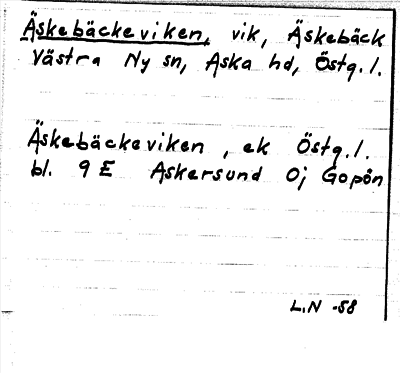 Äskebäckeviken, vik, Äskebäck
Västra Ny sn, Aska hd, Östg.l.
Äskebäckeviken, ek Östg.l.
bl. 9 E Askersund Oj Gopön
L.N -58